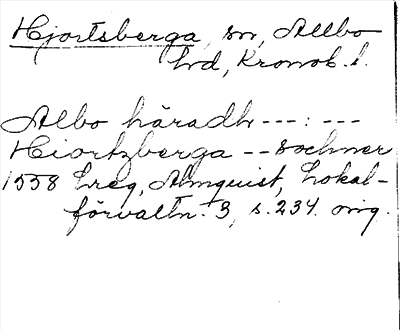 Hjortsberga, sn, Allbo
hd, Kronob. l.
Albo häradh ---:---
Hiortzberga -- sochner
1558 Lreg, Almquist, Lokal-
förvaltn. 3, s. 234. orig.